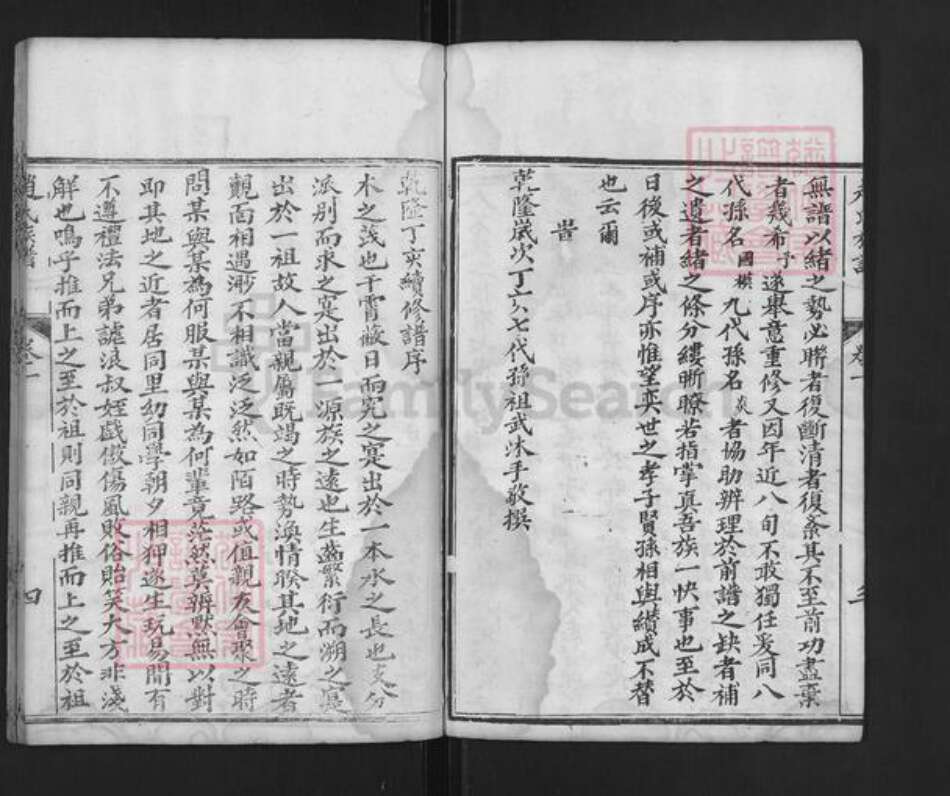 無譜以緒之勢必聯者復斷清者復紊其不至前功盡棄
者幾希予遂舉意重修又因年近八旬不敢獨任爰同八
代孫名國楨九代孫名炎者協助辨理於前譜之缺者補
之遺者緒之條分縷晰瞭若指掌真吾族一快事也至於
日後或補或序亦惟望奕世之孝子賢孫相與纘成不替
也云爾
旹
乾隆歲次丁亥七代孫祖武沐手敬撰
卷一
乾隆丁亥續修譜序
木之茂也干霄蔽日而究之寔出於一本水之長也支分
派別而求之寔出於一源族之遠也生齒繁衍而溯之寔
出於一祖故人當親屬既竭之時勢渙情睽其地之遠者
覿面相遇渺不相識泛泛然如陌路或值親友會聚之時
問某與某為何服某與某為何輩竟茫然莫辨默無以對
即其地之近者居同里幼同學朝夕相狎遂生玩易間有
不遵禮法兄弟謔浪叔姪戲傲傷風敗俗貽笑大方非淺
解也嗚乎推而上之至於祖則同親再推而上之至於祖
趙氏族譜 卷一 四
FamilySearch